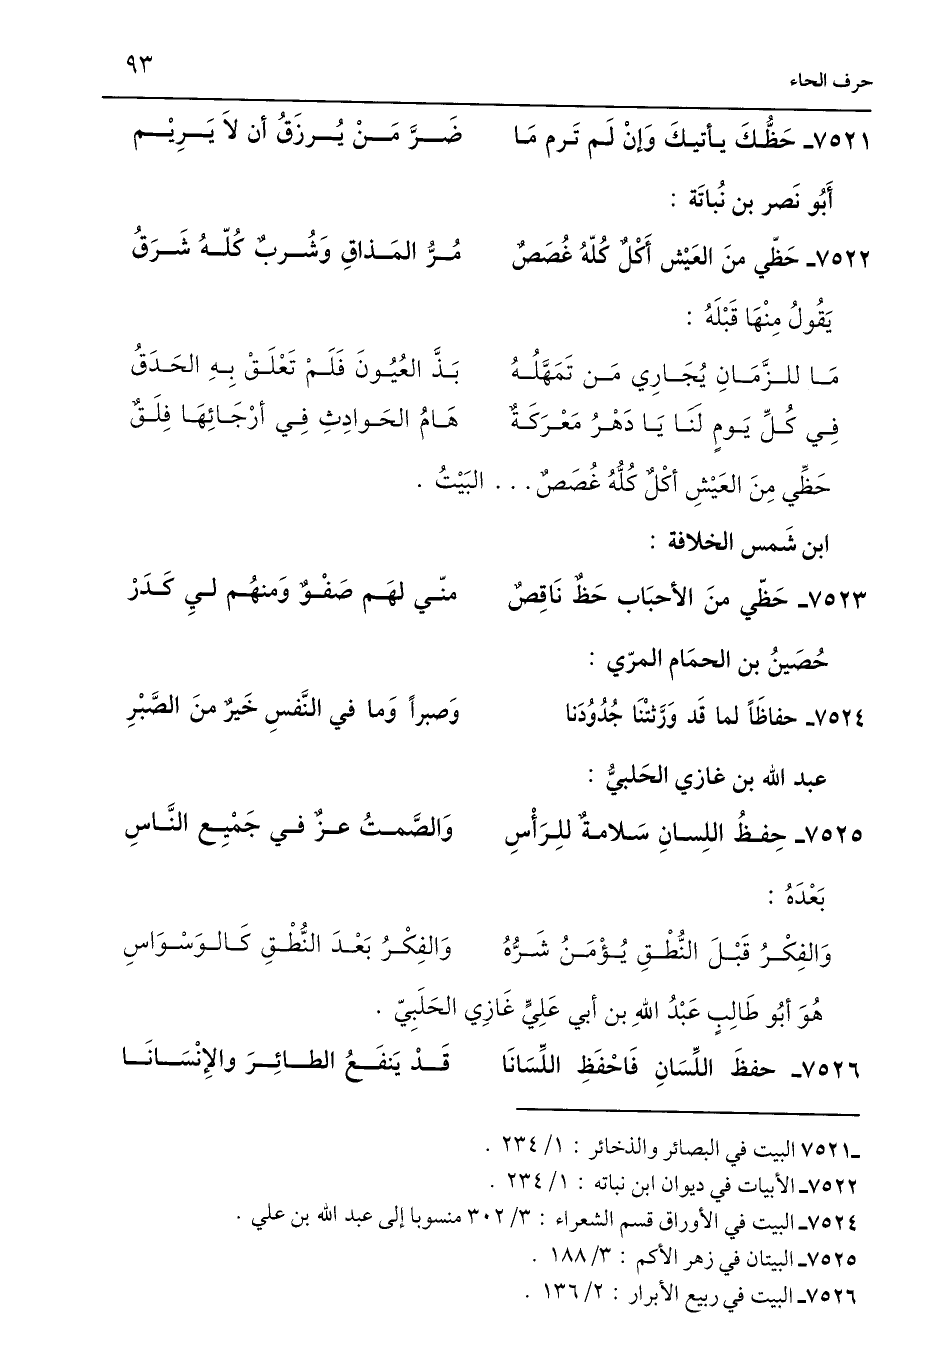 حرف الحاء ٩٣
٧٥٢١ـ حَظُّكَ يأتيكَ وَإنْ لَم تَرم مَا ضَرَّ مَنْ يُرزَقُ أن لاَ يَرِيْم
أَبُو نَصر بن نُباتَة :
٧٥٢٢ـ حَظّي منَ العَيْش أَكْلٌ كُلّهُ غُصَصٌ مُرُّ المَذاقِ وَشُربٌ كُلّهُ شَرَقُ
يَقُولُ مِنْهَا قَبْلَهُ :
مَا للزَّمَانِ يُجَارِي مَن تَمَهَّلُهُ بَذَّ العُيُونَ فَلَمْ تَعْلَقْ بِهِ الحَدَقُ
فِي كُلِّ يَومٍ لَنَا يَا دَهْرُ مَعْرَكَةٌ هَامُ الحَوادِثِ فِي أرْجَائِهَا فِلَقٌ
حَظِّي مِنَ العَيْشِ أكْلٌ كُلُّهُ غُصَصٌ. . . البَيْتُ .
ابن شَمس الخلافة :
٧٥٢٣ـ حَظّي منَ الأحبَاب حَظٌ نَاقِصٌ منّي لهَم صَفْوٌ وَمنهُم لي كَدَرْ
حُصَينُ بن الحمَام المرّي :
٧٥٢٤ـ حفاظَاً لما قَد وَرَّثتْنَا جُدُودَنا وَصبراً وَما في النَّفسِ خَيرٌ منَ الصَّبْرِ
عبد الله بن غازي الحَلبيُّ :
٧٥٢٥ـ حِفظُ اللِسانِ سَلامةٌ للرَأْسِ وَالصَّمتُ عزٌ في جَمْيِعِ النَّاسِ
بَعْدَهُ :
وَالفِكْرُ قَبْلَ النُّطْقِ يُؤْمَنُ شَرُّهُ وَالفِكْرُ بَعْدَ النُّطْقِ كَالوَسْوَاسِ
هُوَ أبُو طَالِبٍ عَبْدُ اللهِ بن أبي عَلِيٍّ غَازِي الحَلَبِيّ .
٧٥٢٦ـ حفظَ اللِّسَانِ فَاحْفَظِ اللِّسَانَا قَدْ يَنفَعُ الطائِرَ والإنْسَانَا
ـ٧٥٢١ البيت في البصائر والذخائر : ١/ ٢٣٤ .
٧٥٢٢ـ الأبيات في ديوان ابن نباته : ١/ ٢٣٤ .
٧٥٢٤ـ البيت في الأوراق قسم الشعراء : ٣/ ٣٠٢ منسوبا إلى عبد الله بن علي .
٧٥٢٥ـ البيتان في زهر الأكم : ٣/ ١٨٨ .
٧٥٢٦ـ البيت في ربيع الأبرار : ٢/ ١٣٦ .